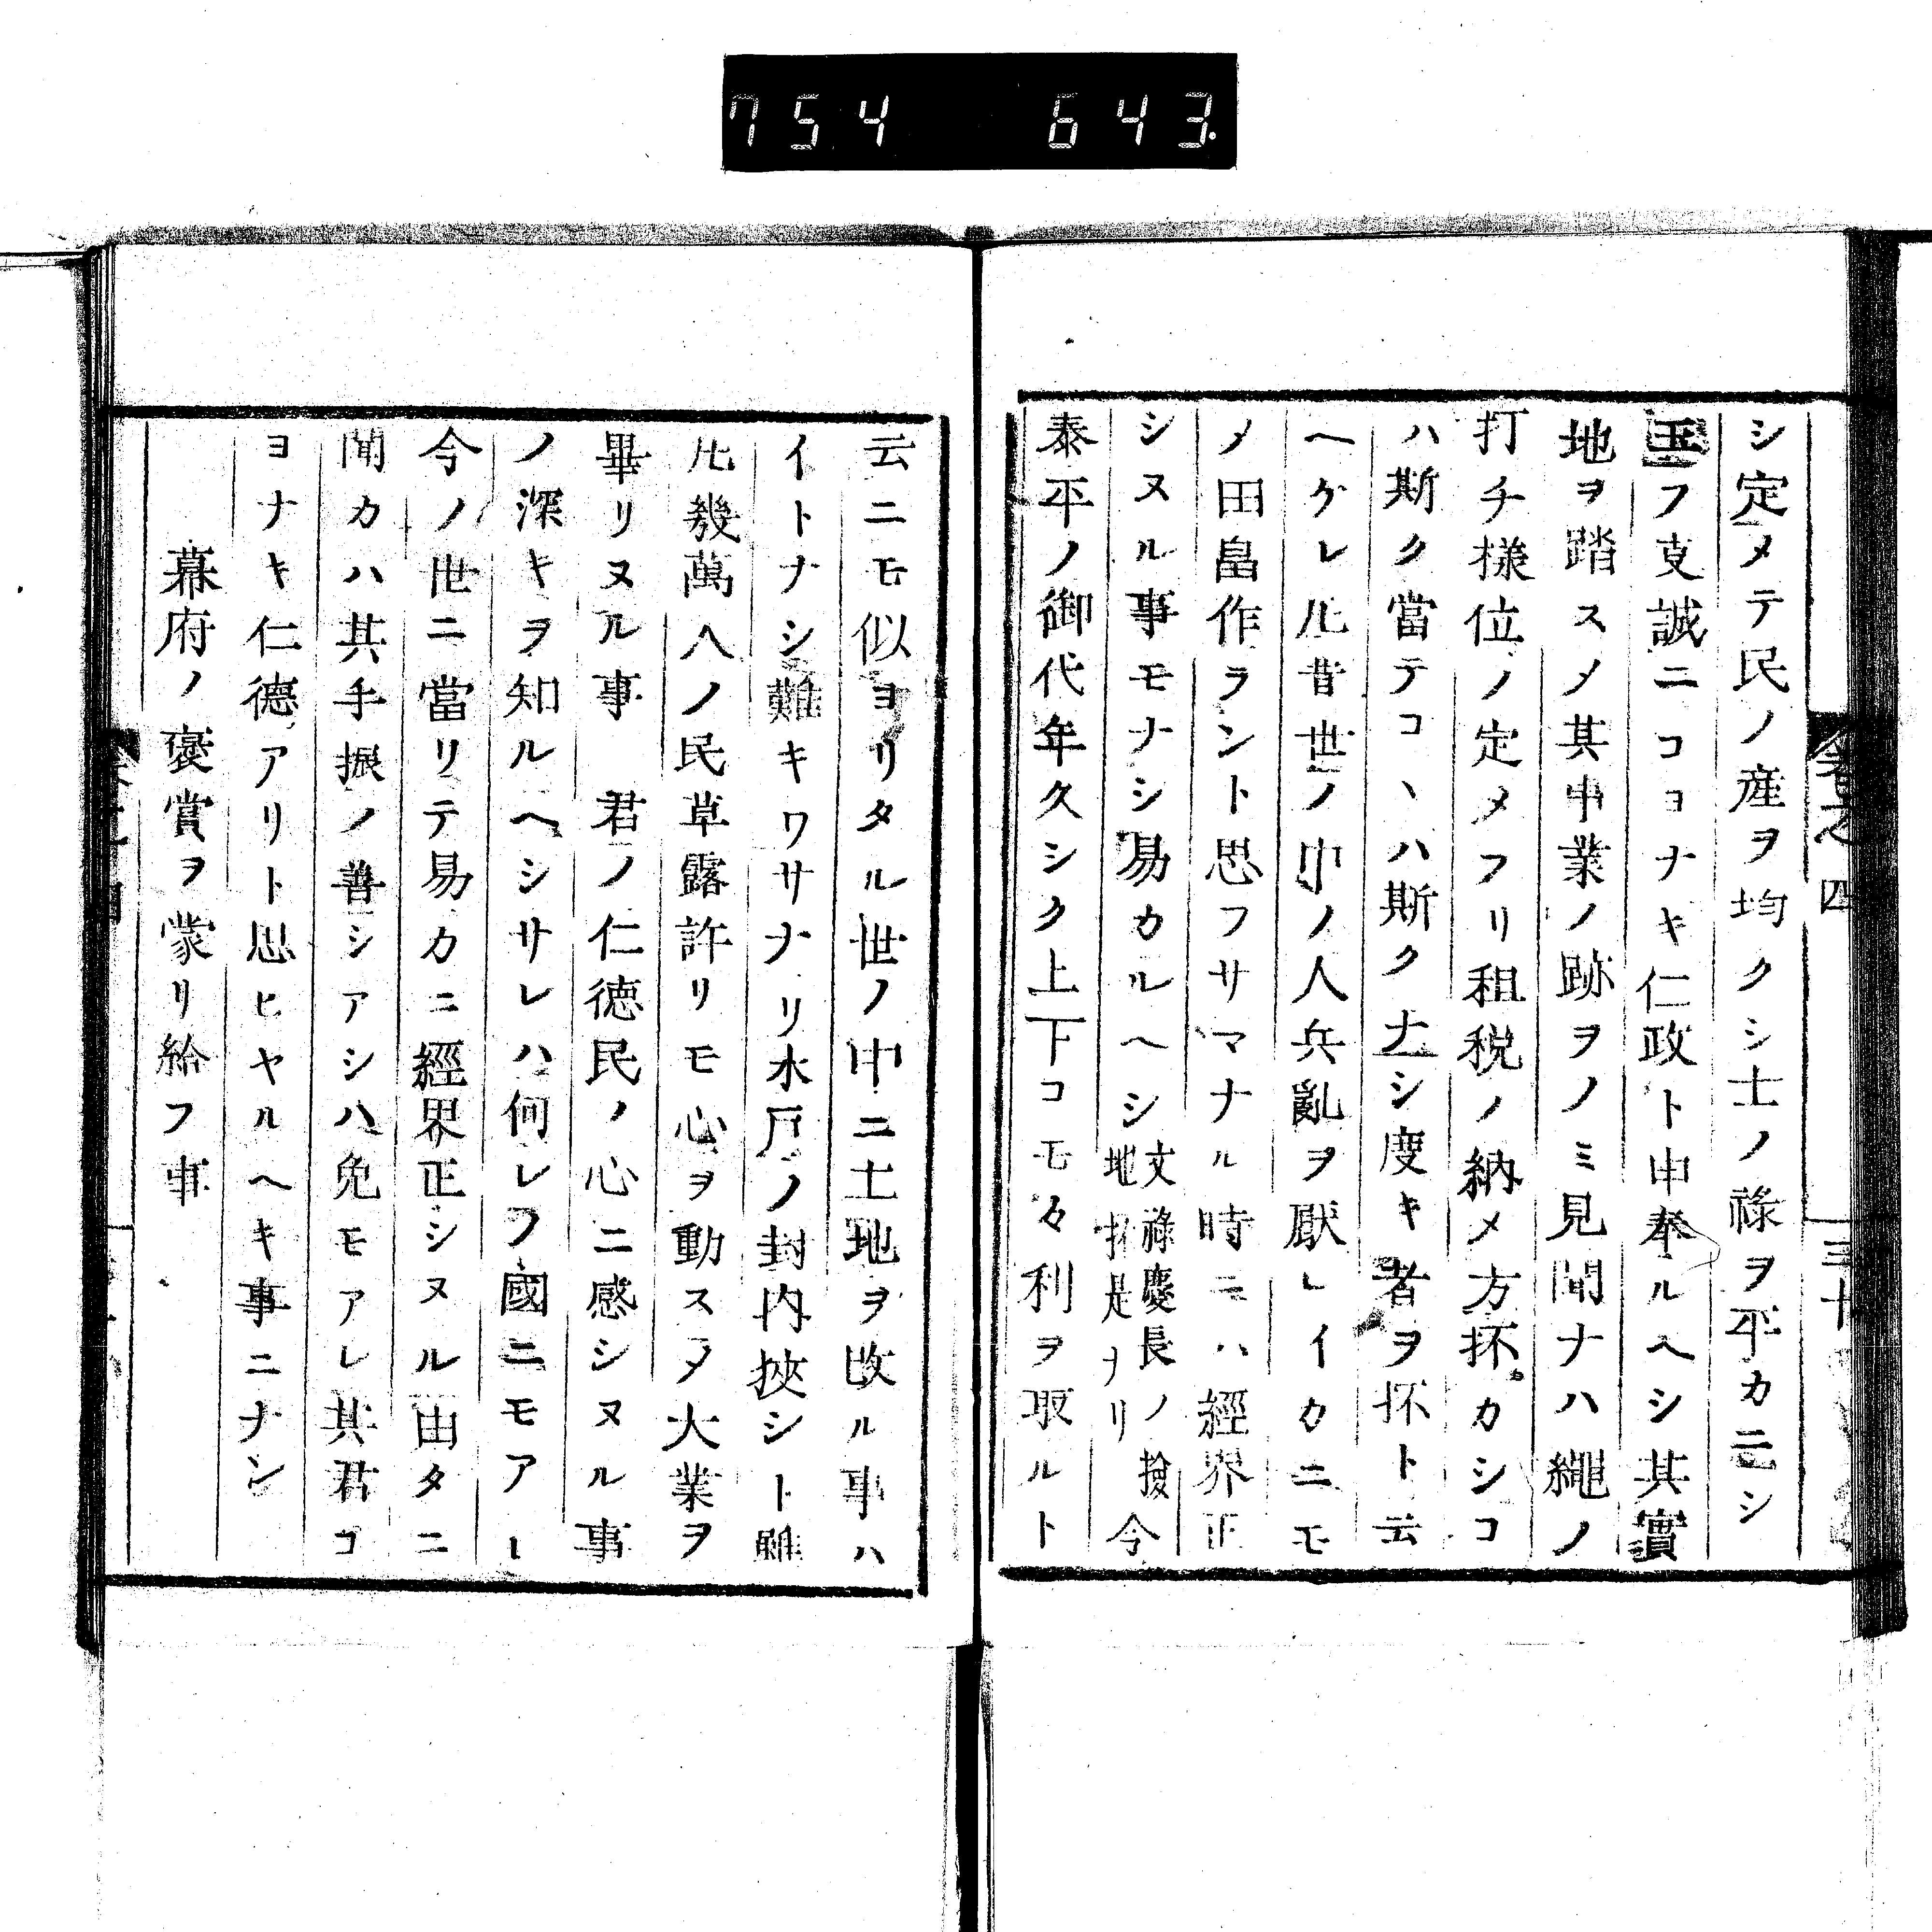 754 643
卷之四
三十
シ定メテ民ノ産ヲ均クシ士ノ祿ヲ平カニシ
玉フ叓誠ニコヨナキ仁政ト申奉ルヘシ其實
地ヲ踏スメ其事業ノ跡ヲノミ見聞ナハ繩ノ
打チ様位ノ定メフリ租税ノ納メ方抔カシコ
ハ斯ク當テコヽハ斯クナシ度キ者ヲ抔ト云
ヘケレ𪜈昔世ノ中ノ人兵亂ヲ厭レイカニモ
メ田畠作ラント思フサマナル時ニハ經界正
シヌル事モナシ易カルヘシ文祿慶長ノ撿地抔是ナリ今
泰平ノ御代年久シク上下コモ々利ヲ取ルト
云ニモ似ヨリタル世ノ中ニ土地ヲ改ル事ハ
イトナシ難キワサナリ水戸ノ封内挾シト雖
𪜈幾萬人ノ民草露許リモ心ヲ動スメ大業ヲ
畢リヌル事 君ノ仁德民ノ心ニ感シヌル事
ノ深キヲ知ルヘシサレハ何レノ國ニモアレ
今ノ世ニ當リテ易カニ經界正シヌル由タニ
聞カハ其手振ノ善シアシハ免モアレ其君コ
ヨナキ仁德アリト思ヒヤルヘキ事ニナン
幕府ノ褒賞ヲ蒙リ給フ事